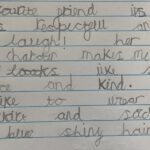 ourite friend is
s respectful an
laugh! her
chatter makes me
Looks like s
ce and kind.
ike to wear
skirt and sock
blue shiny hair